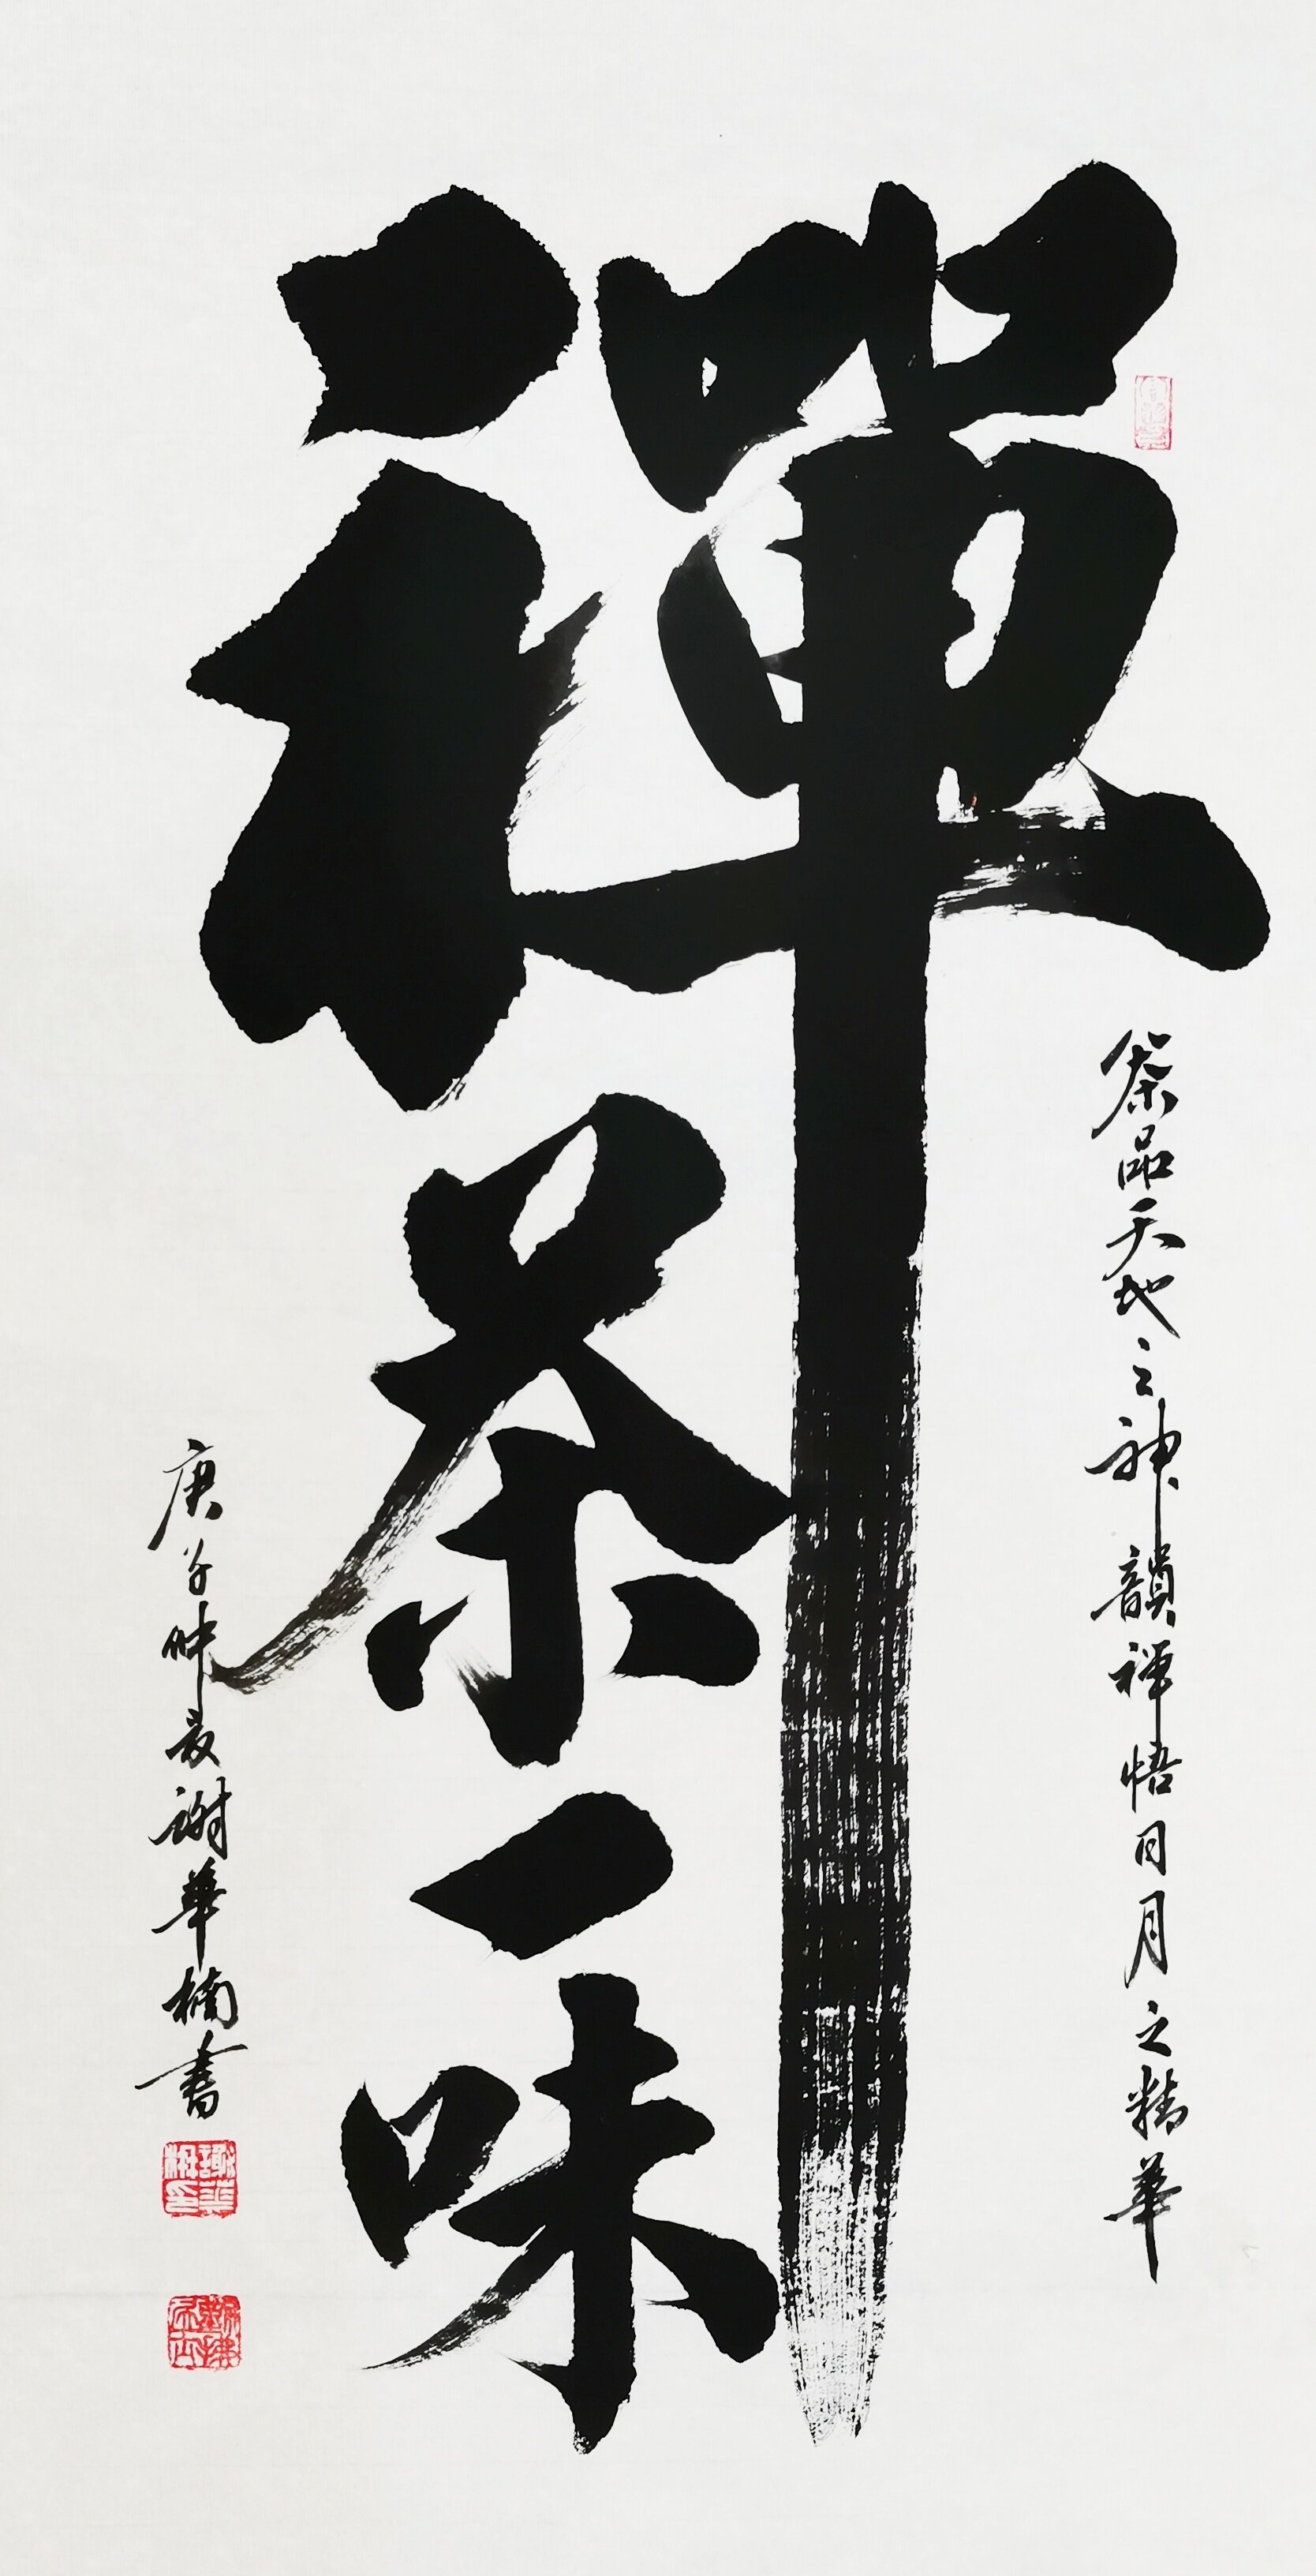 禪茶一味
茶品天地之神韻禪悟日月之精華
庚子仲夏謝華楠書